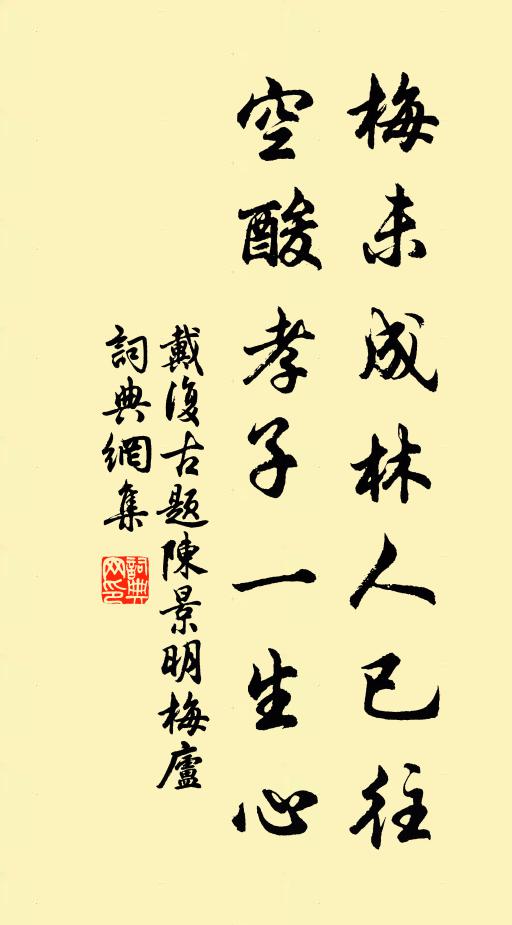 梅未成林人已往
空酸孝子一生心
戴復古题陳景明梅廬
詞典網集
詞典网印